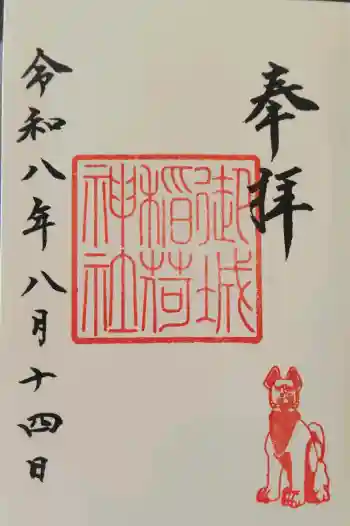 奉拝
御城
稲荷
神社
令和八年八月十四日